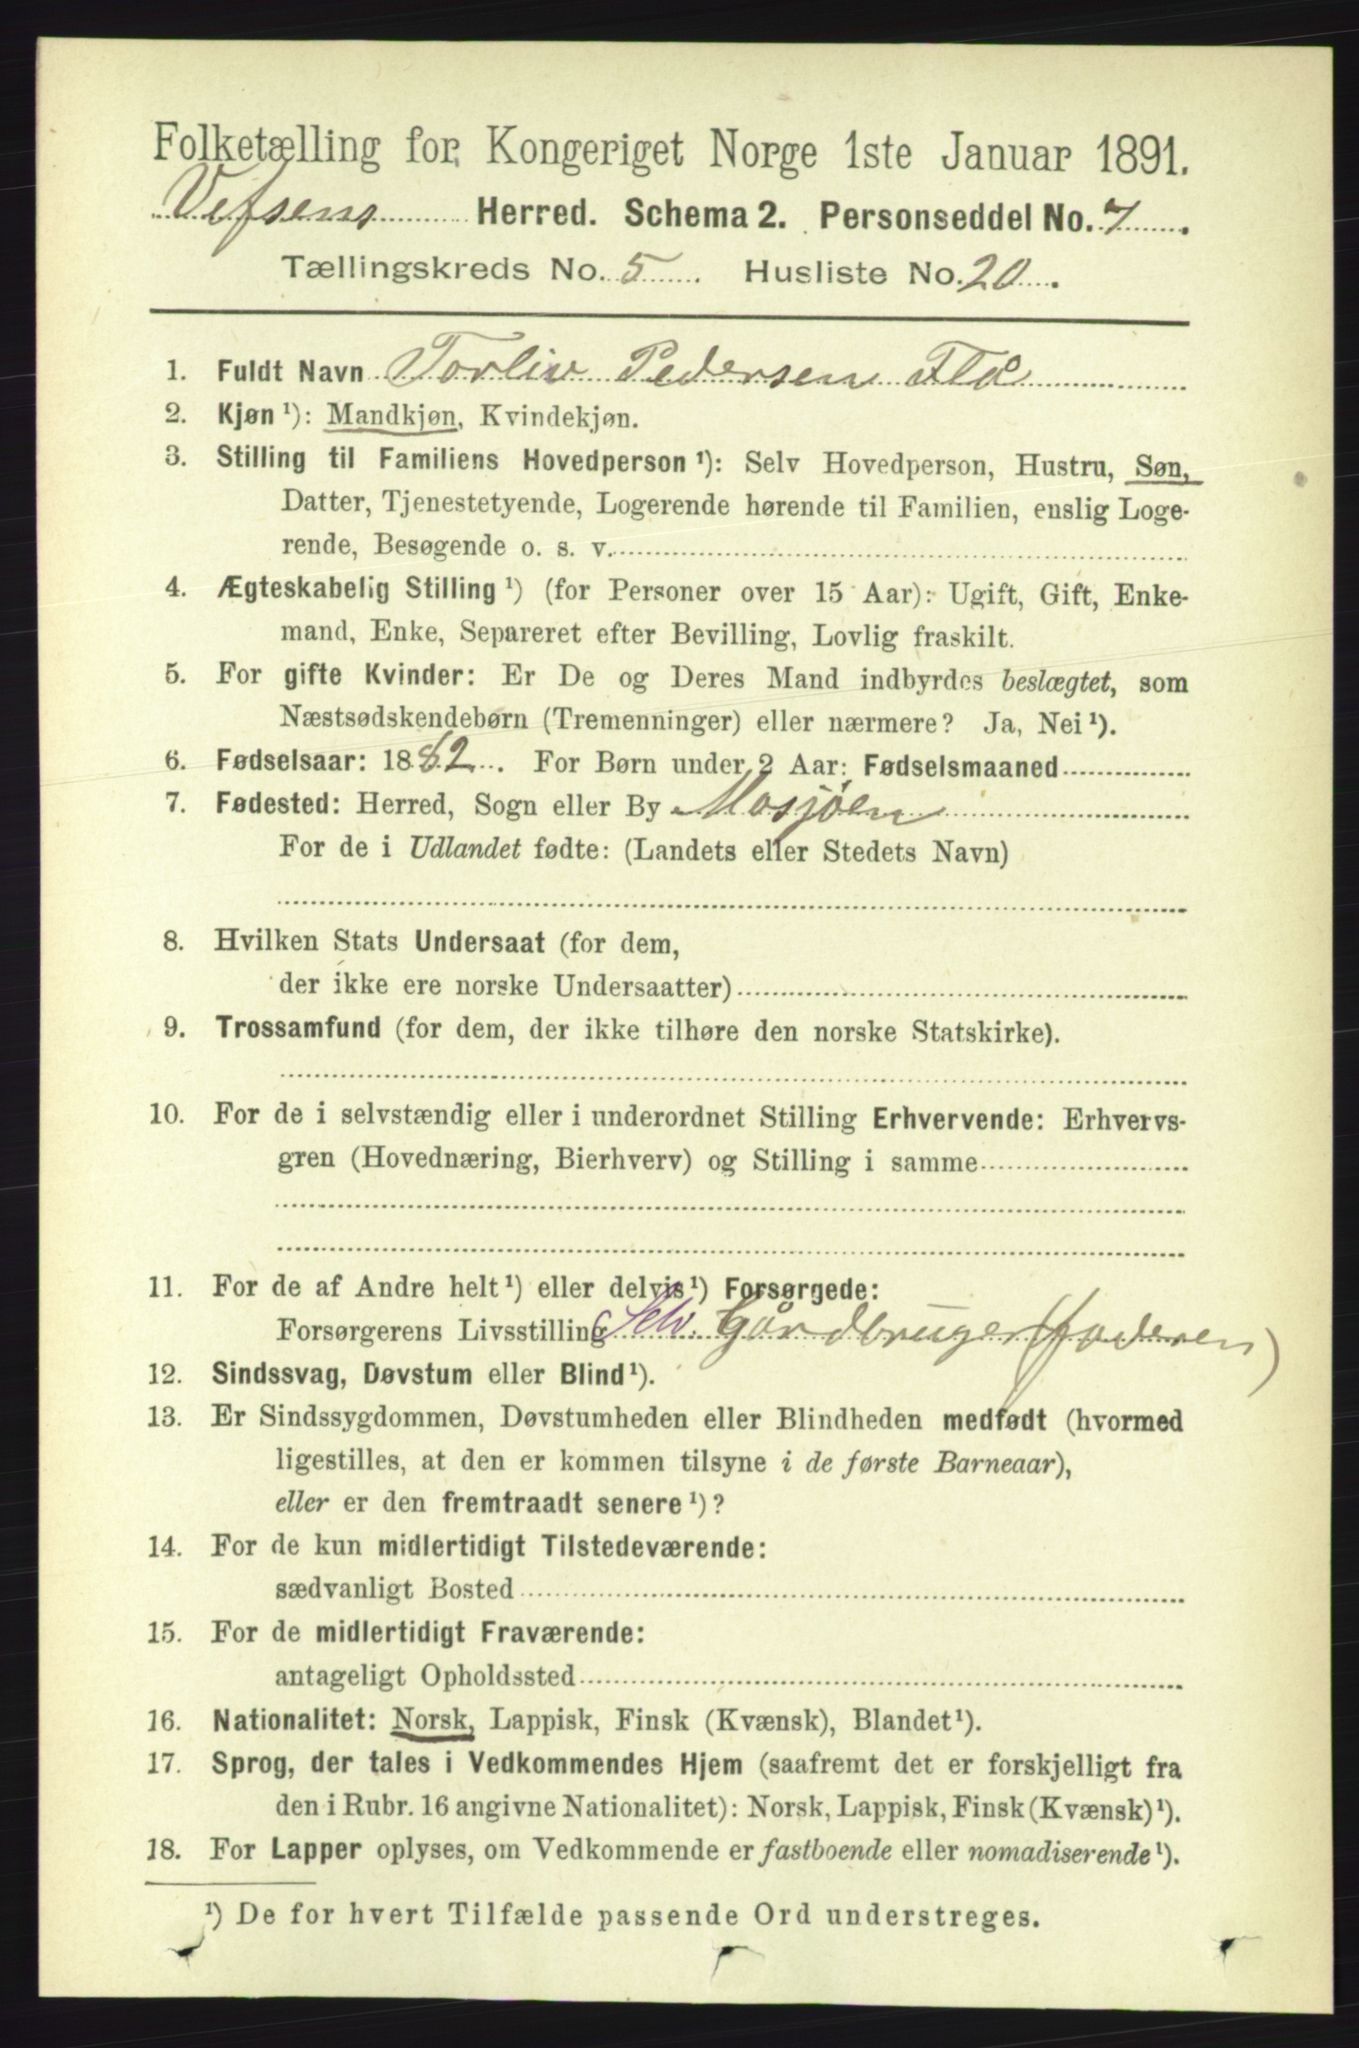 Folketælling for Kongeriget Norge 1ste Januar 1891.
Vefsens Herred. Schema 2. Personseddel No. 7.
Tællingskreds No. 5. Husliste No. 20.
1. Fuldt Navn Torliv Pedersen Flå
2. Kjøn ¹): Mandkjøn, Kvindekjøn.
3. Stilling til Familiens Hovedperson ¹): Selv Hovedperson, Hustru, Søn,
Datter, Tjenestetyende, Logerende hørende til Familien, enslig Loge-
rende, Besøgende o. s. v.
4. Ægteskabelig Stilling ¹) (for Personer over 15 Aar): Ugift, Gift, Enke-
mand, Enke, Separeret efter Bevilling, Lovlig fraskilt.
5. For gifte Kvinder: Er De og Deres Mand indbyrdes beslægtet, som
Næstsødskendebørn (Tremenninger) eller nærmere? Ja, Nei ¹).
6. Fødselsaar: 1882. For Børn under 2 Aar: Fødselsmaaned
7. Fødested: Herred, Sogn eller By Mosjøen
For de i Udlandet fødte: (Landets eller Stedets Navn)
8. Hvilken Stats Undersaat (for dem,
der ikke ere norske Undersaatter)
9. Trossamfund (for dem, der ikke tilhøre den norske Statskirke).
10. For de i selvstændig eller i underordnet Stilling Erhvervende: Erhvervs-
gren (Hovednæring, Bierhverv) og Stilling i samme
11. For de af Andre helt ¹) eller delvis ¹) Forsørgede:
Forsørgerens Livsstilling Selv. Gårdbruger (faderen)
12. Sindssvag, Døvstum eller Blind ¹).
13. Er Sindssygdommen, Døvstumheden eller Blindheden medfødt (hvormed
ligestilles, at den er kommen tilsyne i de første Barneaar),
eller er den fremtraadt senere ¹)?
14. For de kun midlertidigt Tilstedeværende:
sædvanligt Bosted
15. For de midlertidigt Fraværende:
antageligt Opholdssted
16. Nationalitet: Norsk, Lappisk, Finsk (Kvænsk), Blandet ¹).
17. Sprog, der tales i Vedkommendes Hjem (saafremt det er forskjelligt fra
den i Rubr. 16 angivne Nationalitet): Norsk, Lappisk, Finsk (Kvænsk) ¹).
18. For Lapper oplyses, om Vedkommende er fastboende eller nomadiserende ¹).
¹) De for hvert Tilfælde passende Ord understreges.